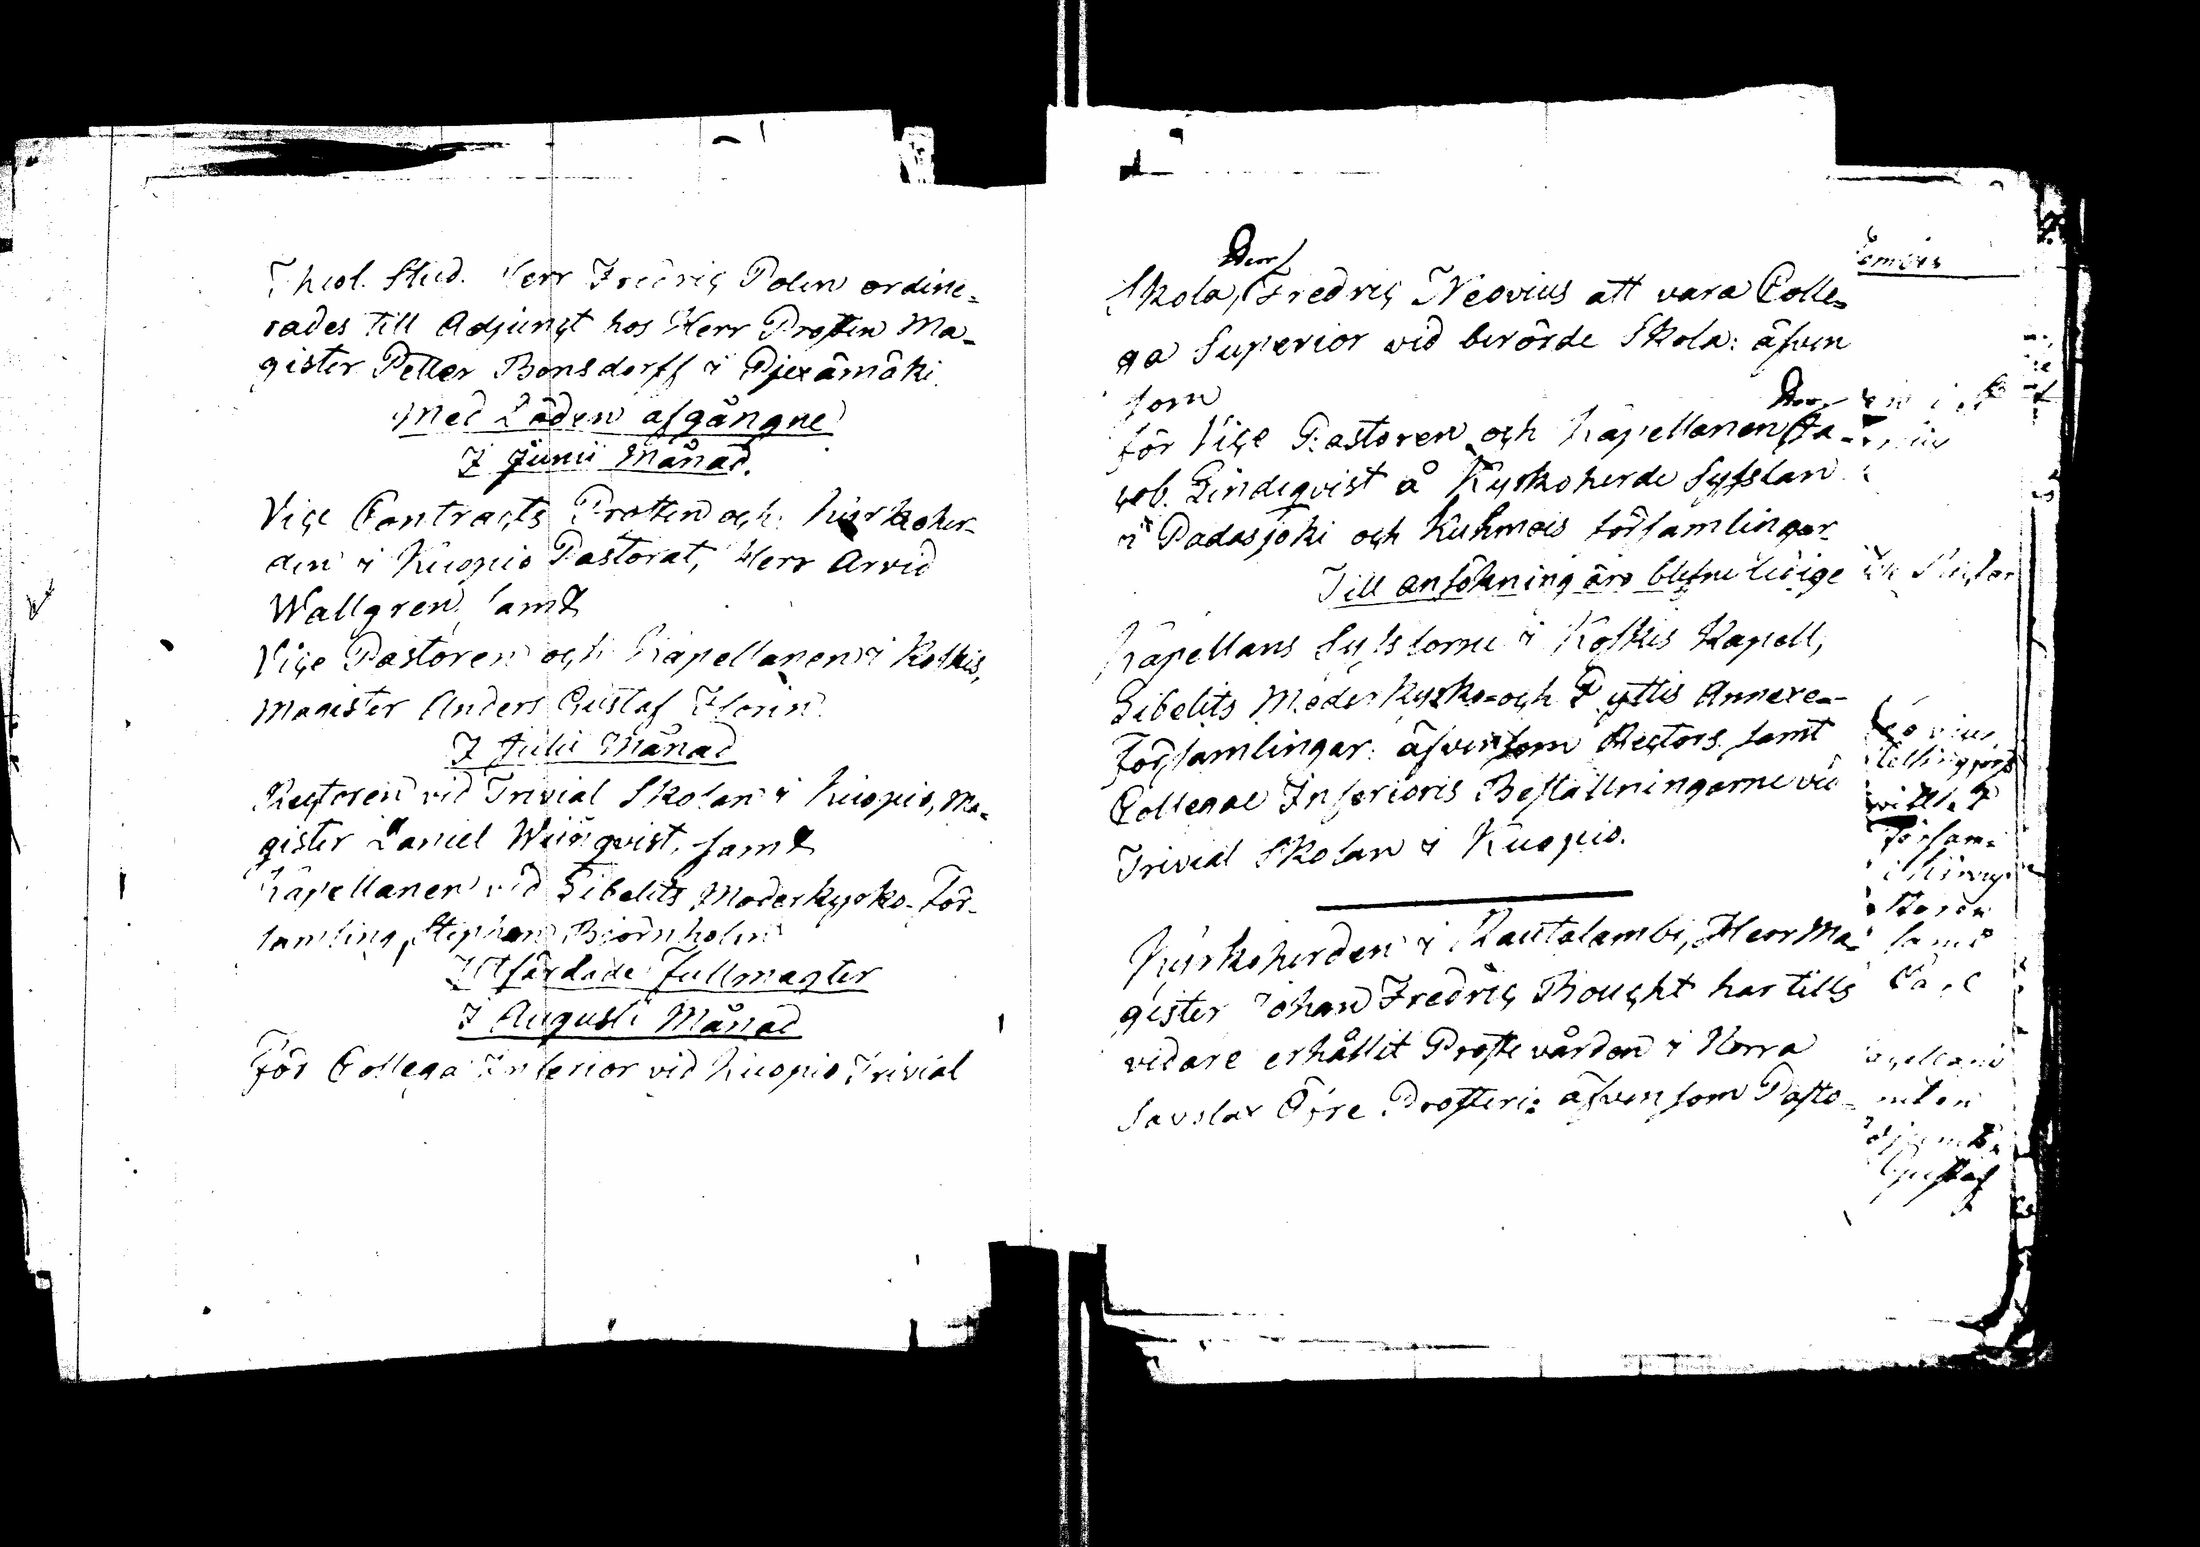 Theol. Stud. Herr Fredric Polen ordine=
rades till Adjunct hos Herr Prosten Ma=
gister Petter Bonsdorff i Pjexämäki
Med Döden afgångne
I Junii Månad.
Vice Contracts Prosten och Kyrkoher=
den i Kuopio Pastorat, Herr Arvid
Wallgren, samt
Vice Pastoren och Kapellanen i Koskis,
Magister Anders Gustaf Florin.
I Julii Månad
Rectoren vid Trivial Skolan i Kuopio, Ma=
gister Daniel Wiönqvist, samt
Kapellanen vid Libelits Moderkyrko-För=
samling, Stephan Björnholm
Utfärdade Fullmagter
I Augusti Månad
För Collega Inferior vid Kuopio Trivial
Herr
Skola, Fredric Neovius att vara Colle=
ga Superior vid berörde Skola: äfven
som
Herr
för Vice Pastoren och Kapellanen Ja=
cob Lindeqvist å Kyrkoherde Sysslan
i Padasjoki och Kuhmois församlingar
Till ansökning äro blefne ledige
Kapellans Sysslorne i Koskis Kapell,
Libelits Moder Kyrko- och Pyttis Annexe=
Församlingar: äfvensom Rectors samt
Collegae Inferioris Beställningarne vid
Trivial Skolan i Kuopio.
Kyrkoherden i Rautalambi, Herr Ma=
gister Johan Fredric Bought har tills
vidare erhållit Proste vården i Norra
Savolax Öfre Prosteri: äfvensom Pasto=
Gustaf